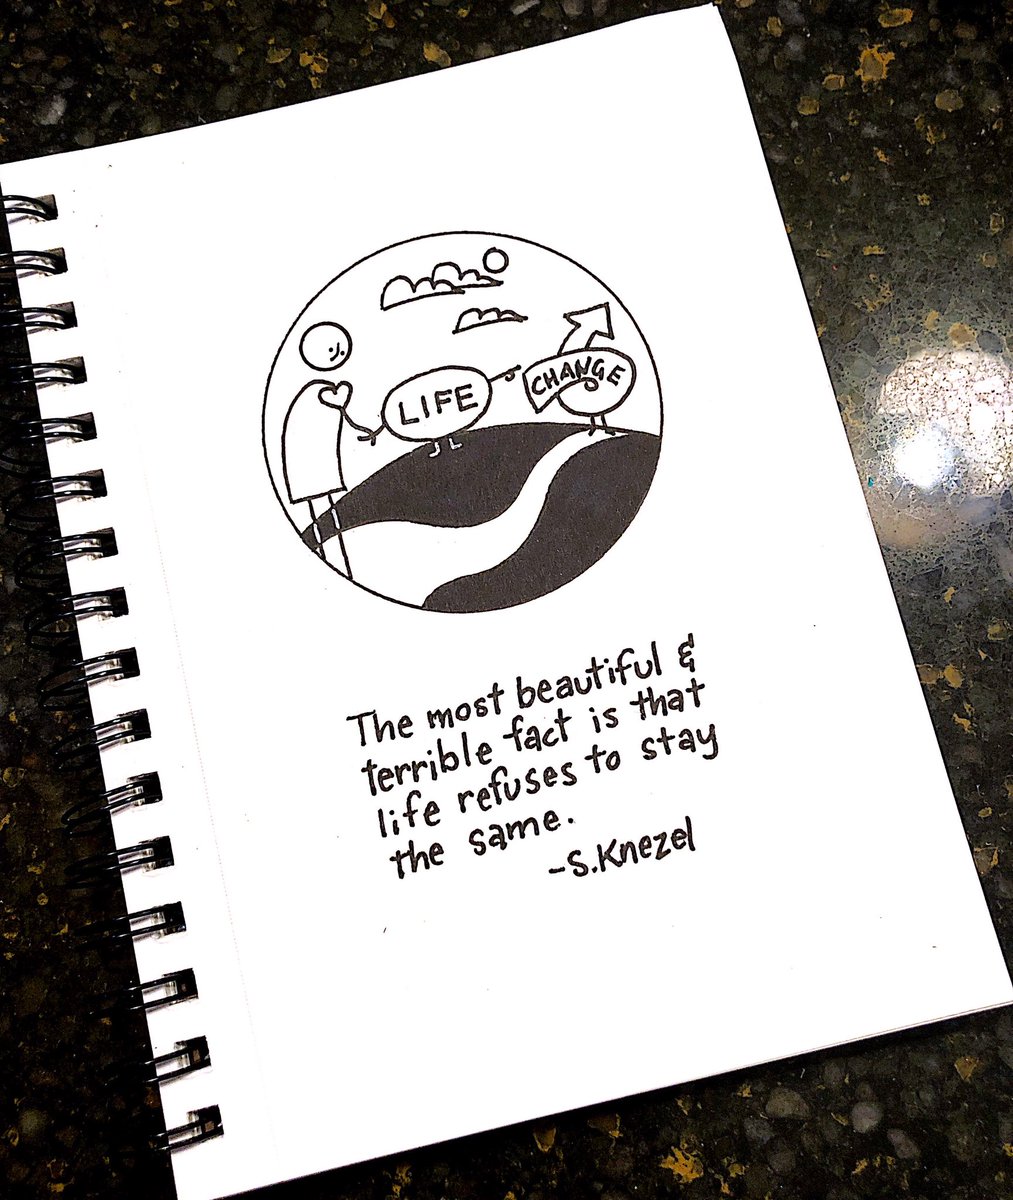 LIFE
CHANGE
The most beautiful &
terrible fact is that
life refuses to stay
the same.
-S.Knezel